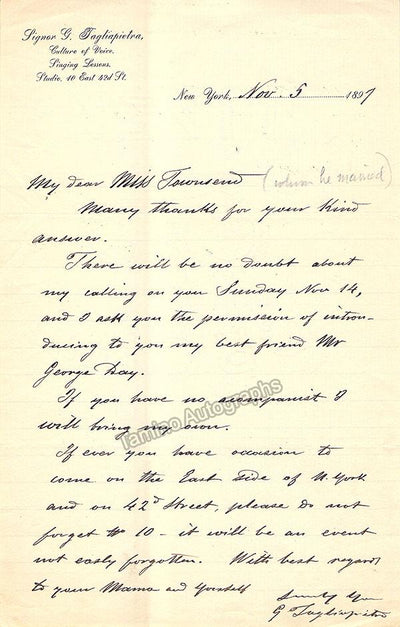 Signor G. Tagliapietra,
Culture of Voice,
Singing Lessons.
Studio, 10 East 42d St.
New York, Nov. 5 1897
My dear Miss Townsend (whom he married)
Many thanks for your Kind
answer.
There will be no doubt about
my calling on you Sunday Nov 14,
and I ask you the permission of intro-
ducing to you my best friend Mr
George Day.
If you have no acompanist I
will bring my own.
Tamino Autographs
If ever you have occasion to
come on the East side of N. York
and on 42d Street, please do not
forget No 10 - it will be an event
not easly forgotten. With best regards
to your Mama and Yourself
G Tagliapietra